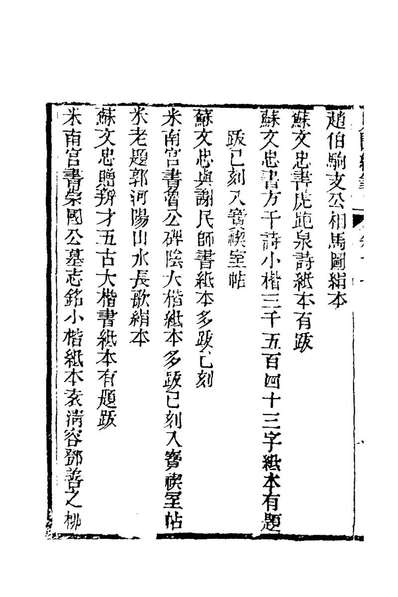 趙伯駒支公相馬圖絹本
蘇文忠書虎跑泉詩紙本有跋
蘇文忠書方干詩小楷三千五百四十三字紙本有題
跋已刻入寶禊室帖
蘇文忠與謝民師書紙本多跋已刻
米南宮書曾公碑陰大楷紙本多跋已刻入寶禊室帖
米老題郭河陽山水長歌絹本
蘇文忠贈辨才五古大楷書紙本有題跋
米南宮書崇國公墓志銘小楷紙本袁淸容鄧善之柳